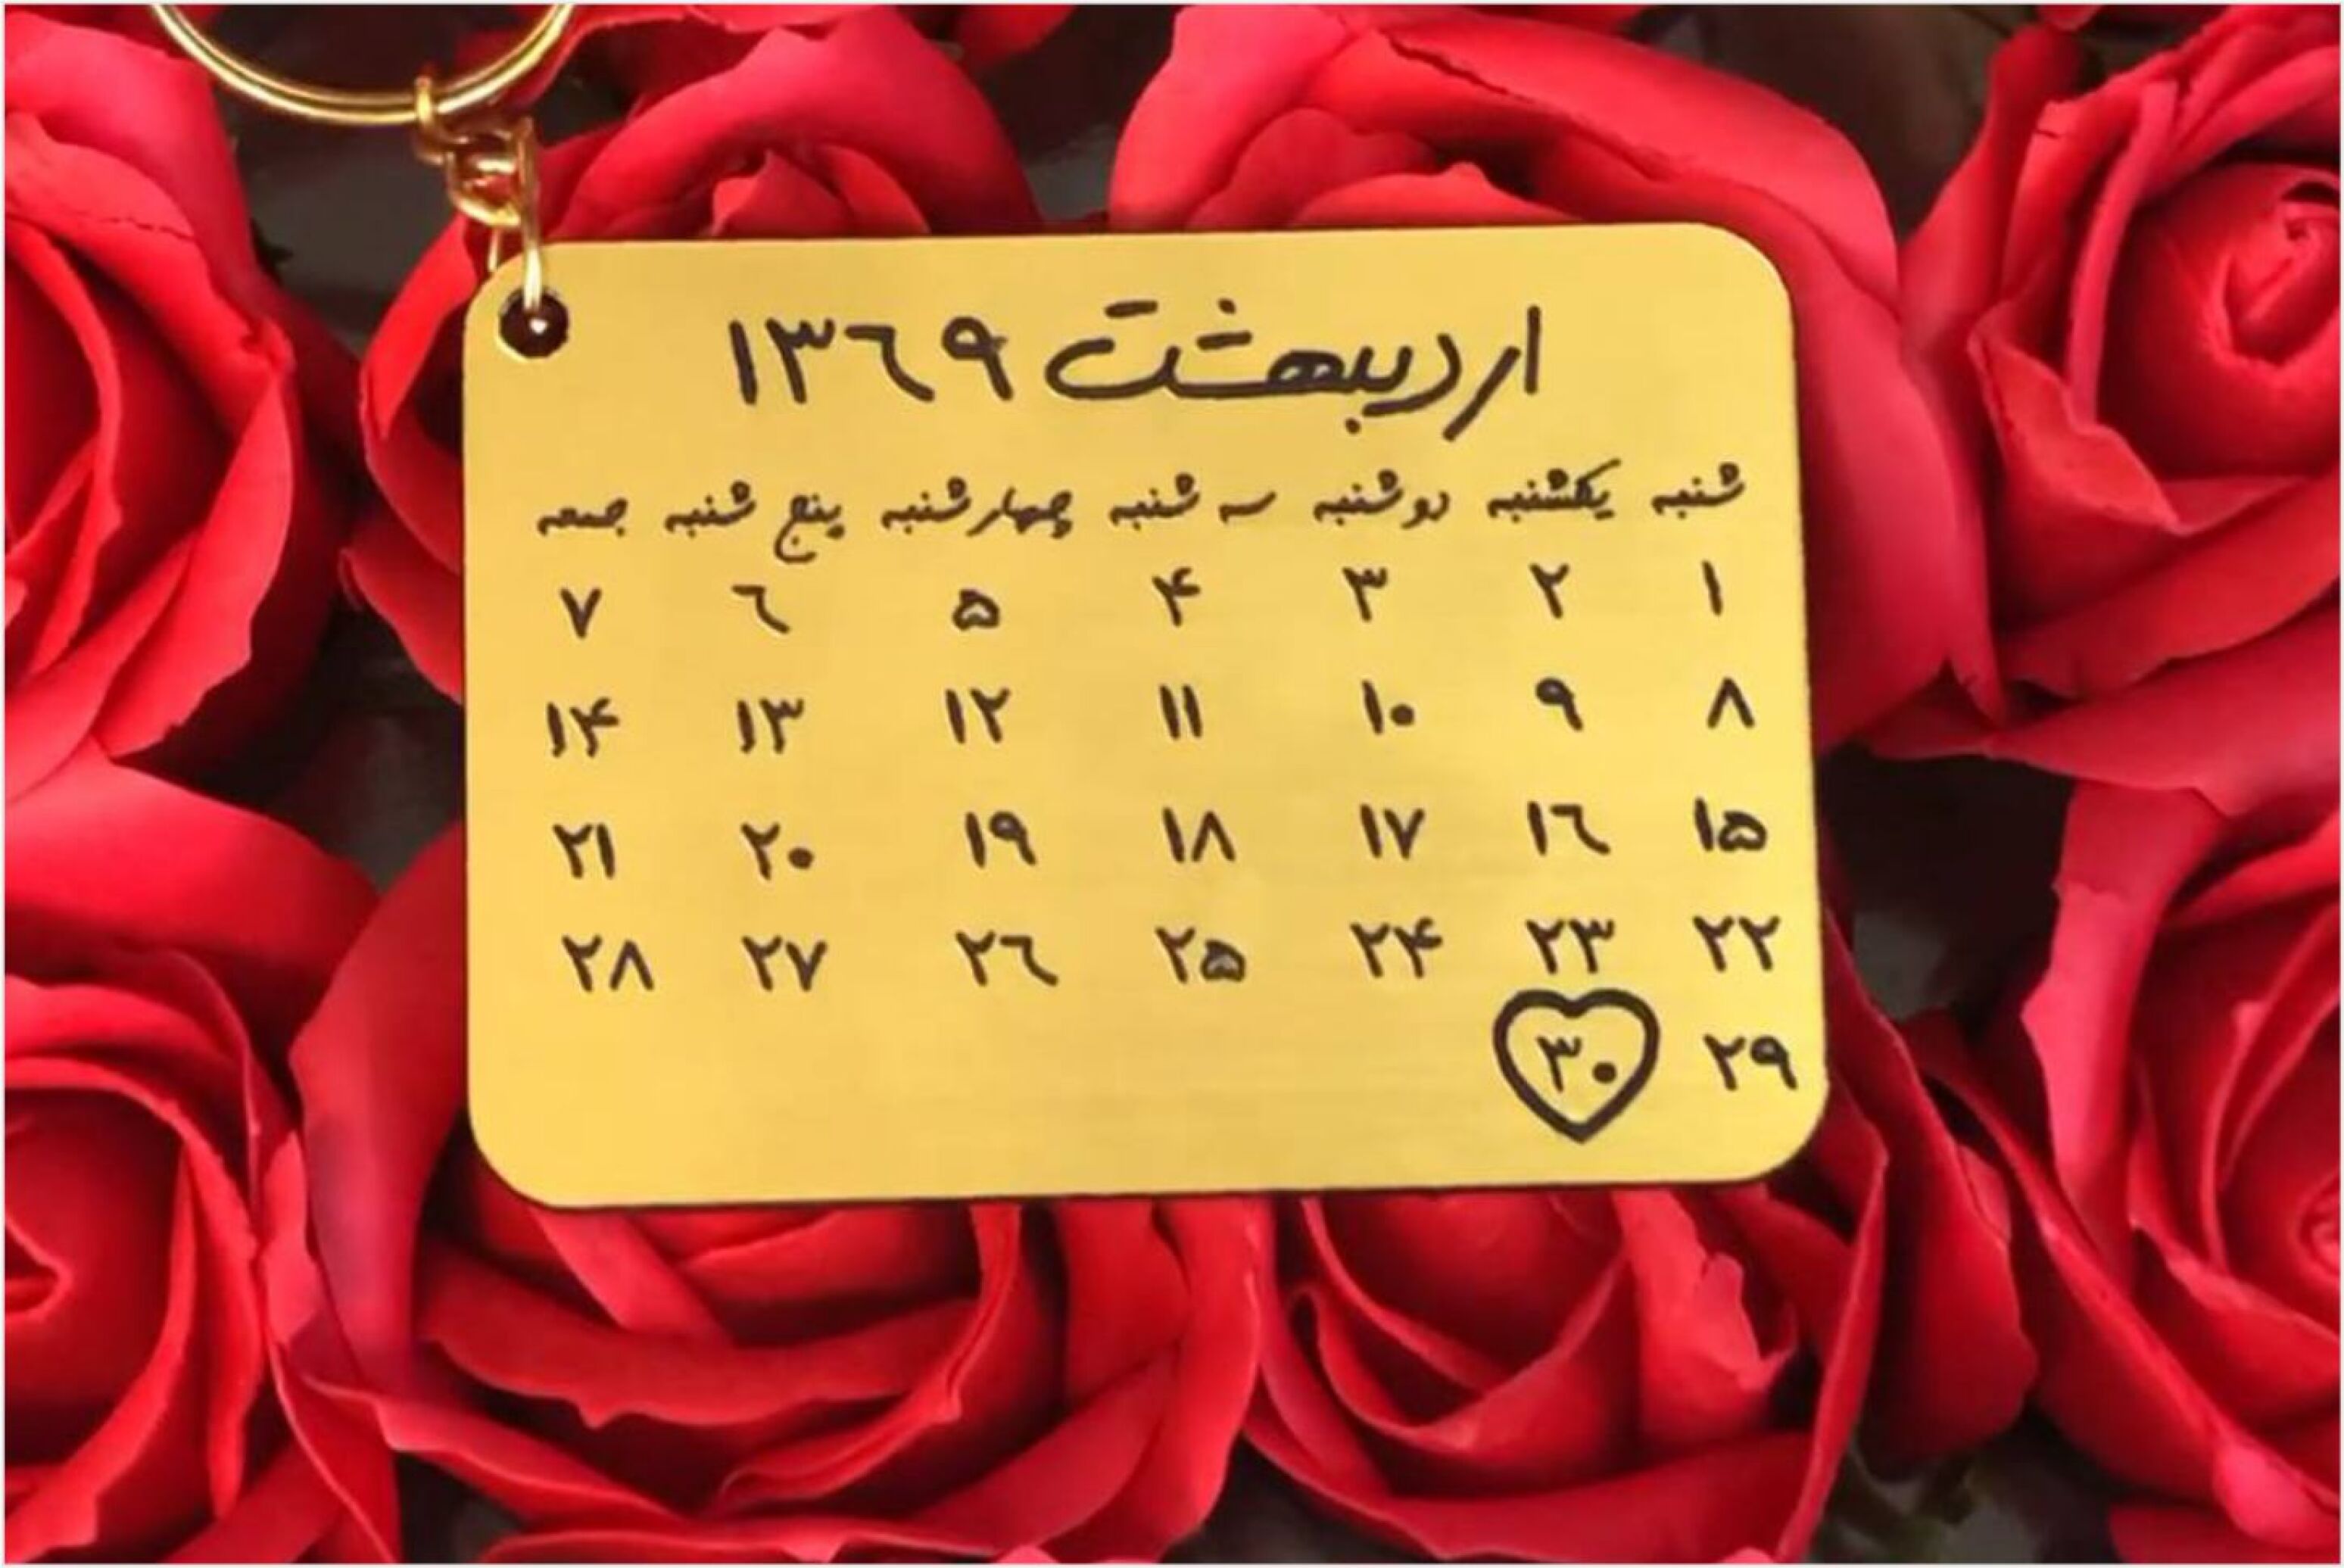 اردیبهشت ۱۳۶۹
شنبه یکشنبه دوشنبه سه شنبه چهارشنبه پنج شنبه جمعه
۱ ۲ ۳ ۴ ۵ ۶ ۷
۸ ۹ ۱۰ ۱۱ ۱۲ ۱۳ ۱۴
۱۵ ۱۶ ۱۷ ۱۸ ۱۹ ۲۰ ۲۱
۲۲ ۲۳ ۲۴ ۲۵ ۲۶ ۲۷ ۲۸
۲۹ ۳۰